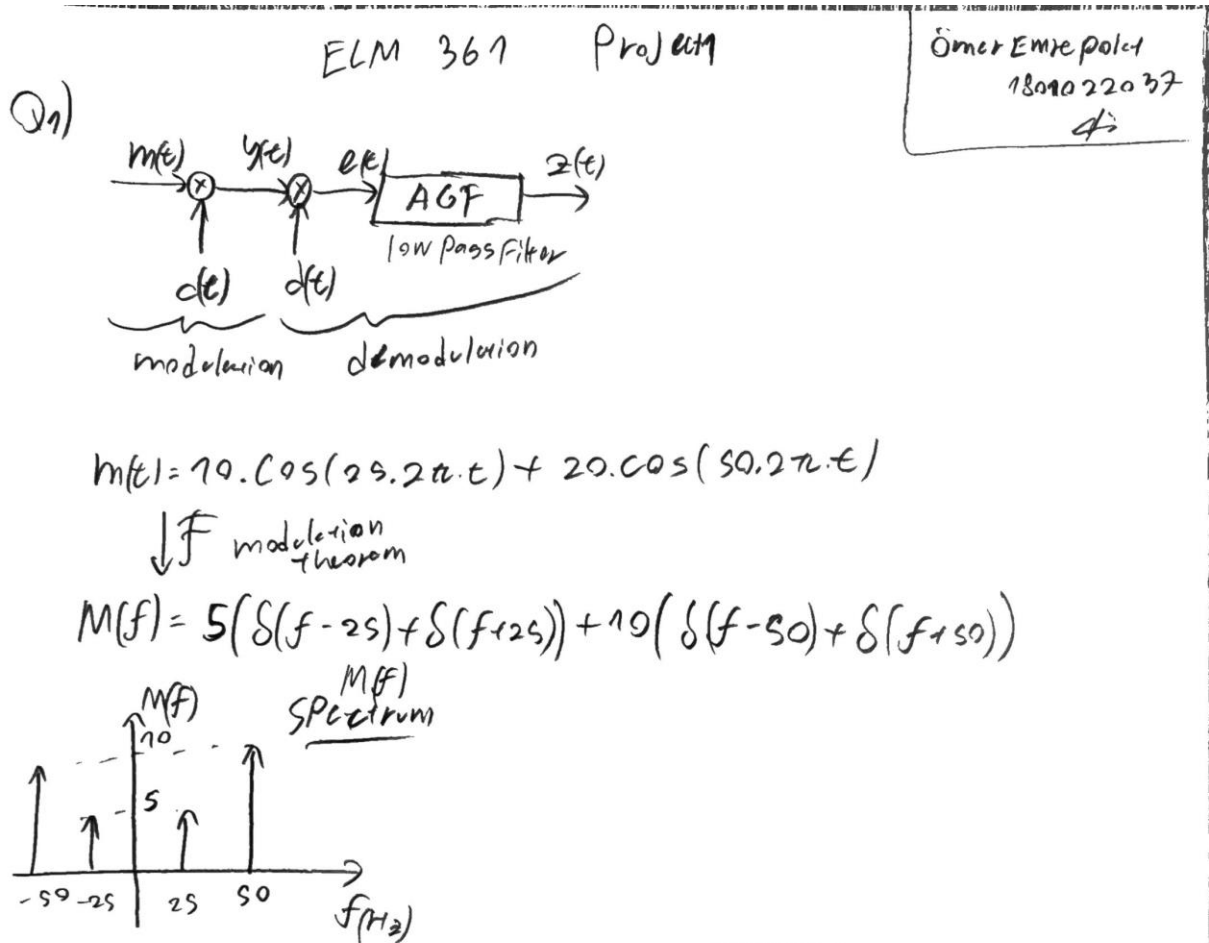 ELM 361 Project1
Ömer Emre Polat
1801022037
Q1)
m(t) y(t) e(t) z(t)
x x AGF
low Pass Filter
c(t) d(t)
modulation demodulation
m(t)=10.Cos(25.2π.t)+ 20.cos(50.2π.t)
↓F modulation
theorem
M(f)= 5(δ(f-25)+δ(f+25))+10(δ(f-50)+δ(f+50))
M(f) M(f)
spectrum
10
5
-50 -25 25 50
f(Hz)